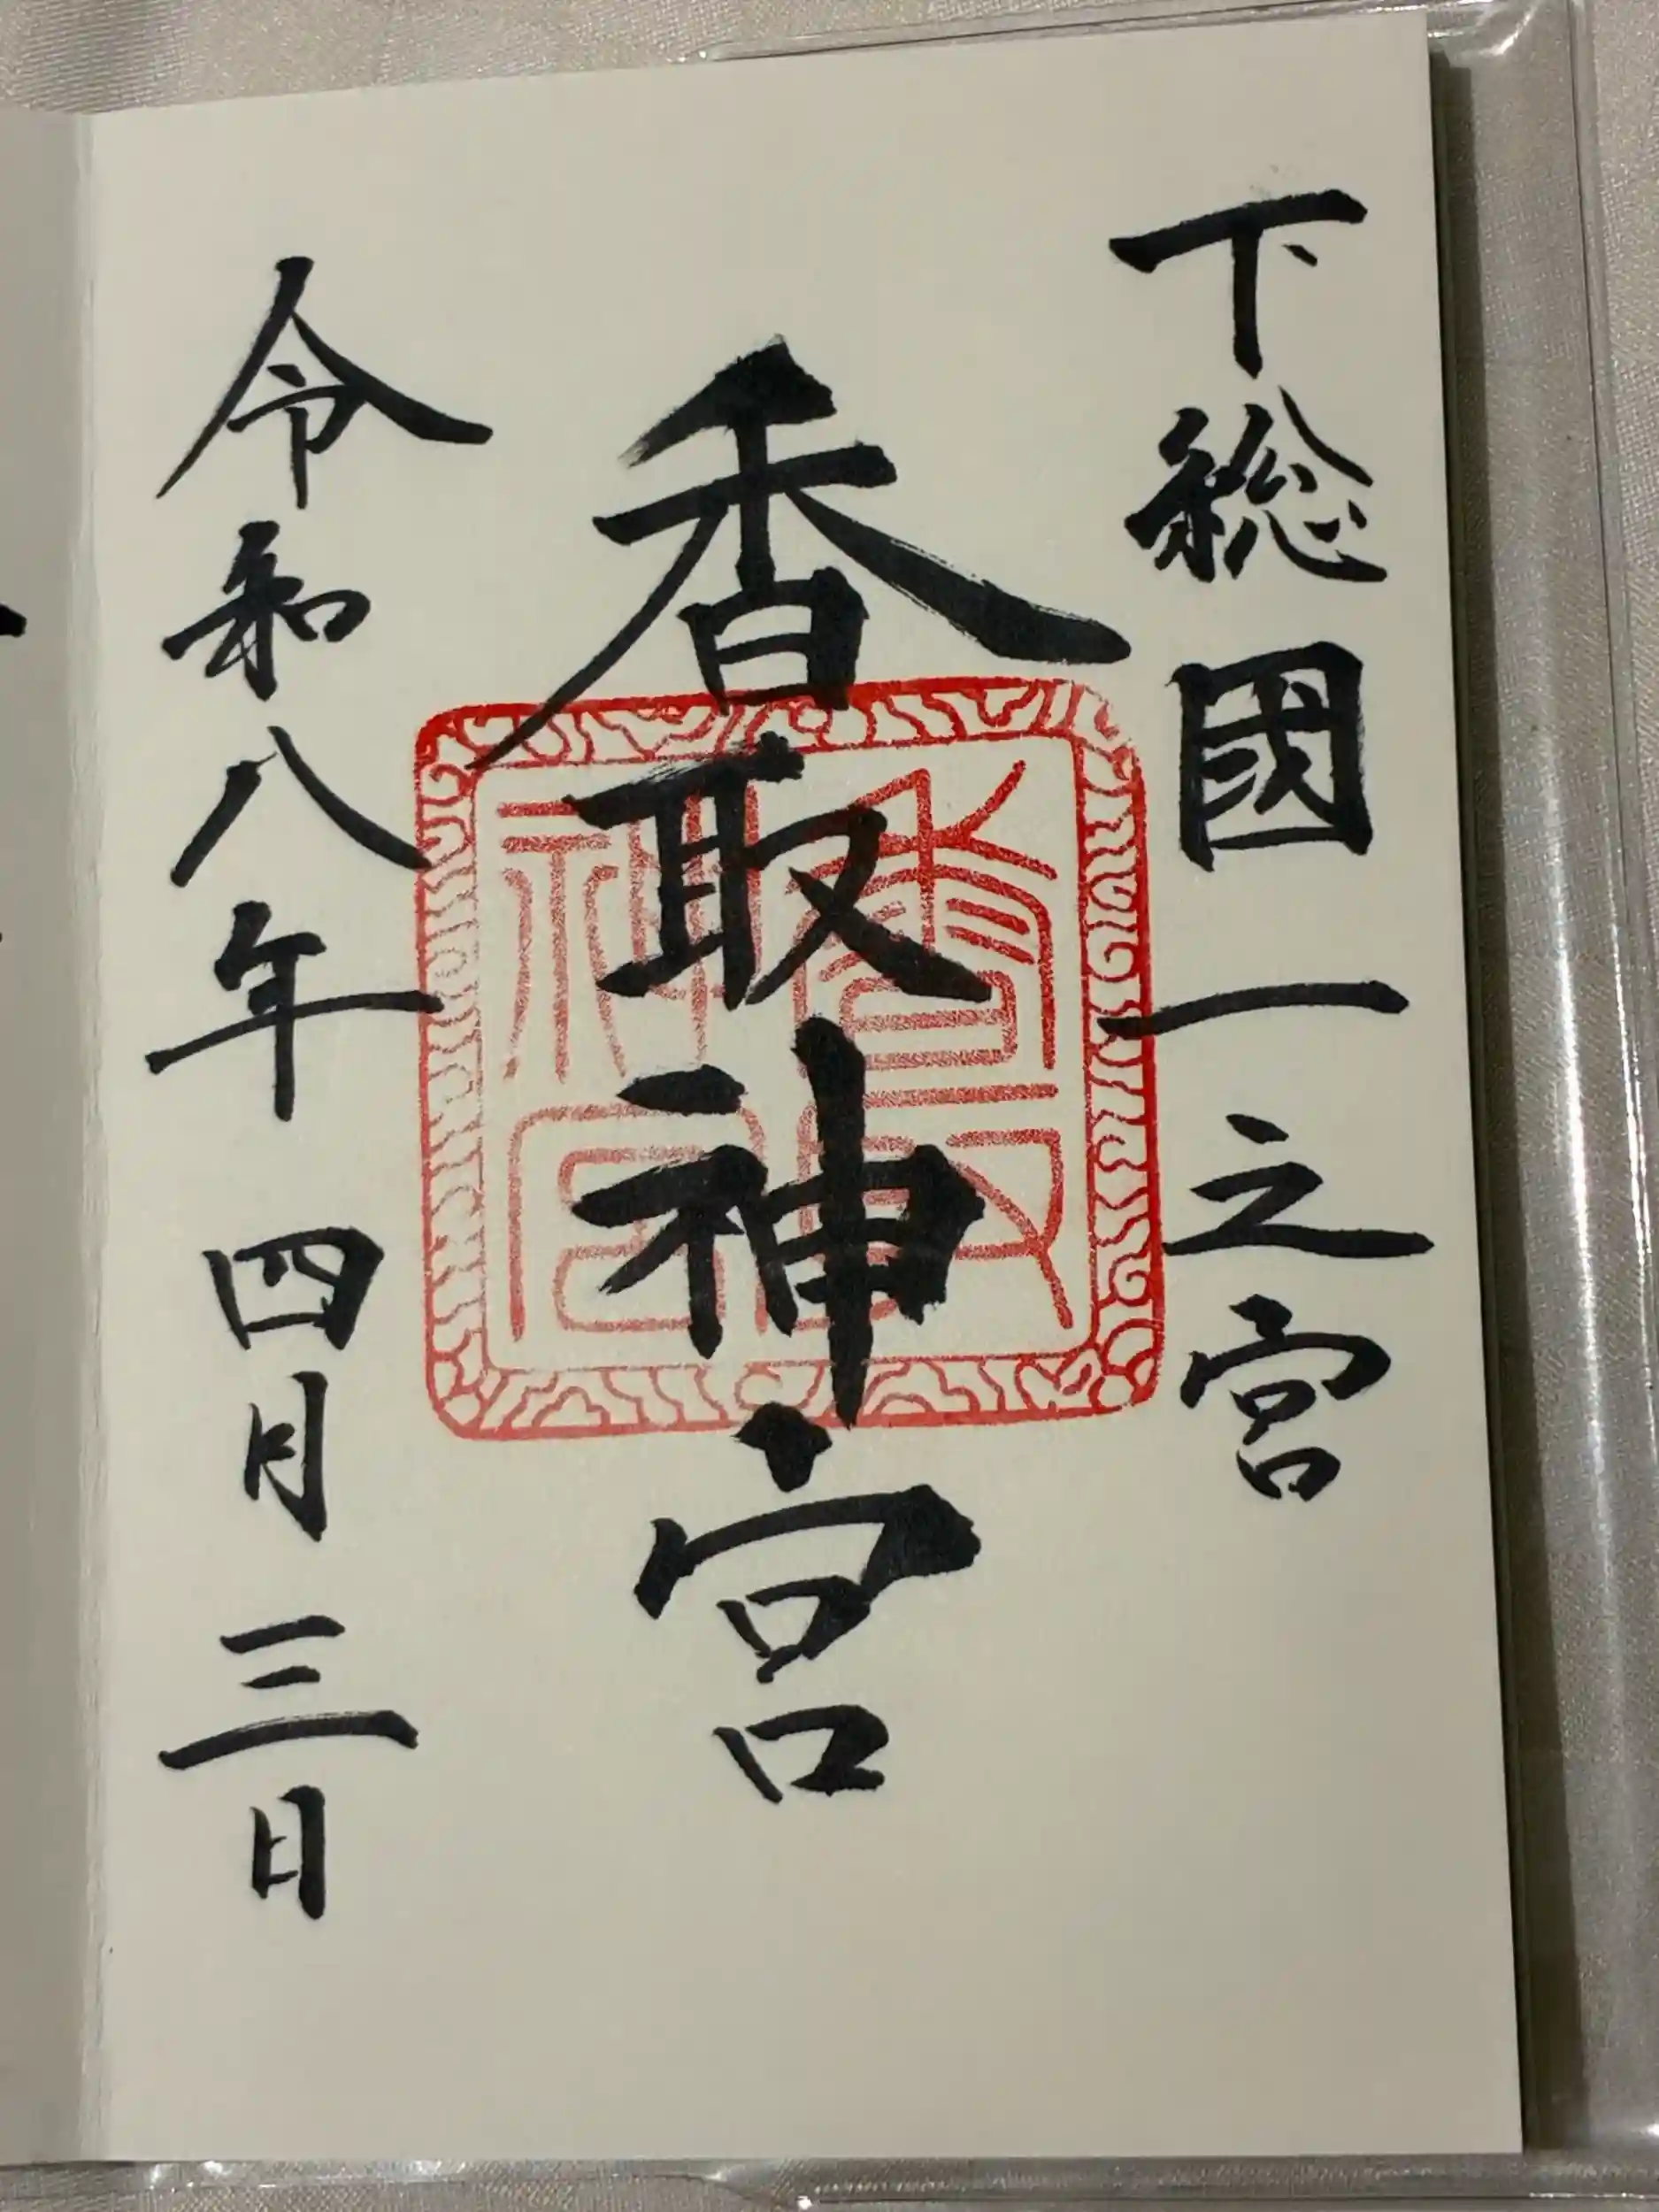 下総國一之宮
香取神宮
香取神宮
令和八年 四月三日